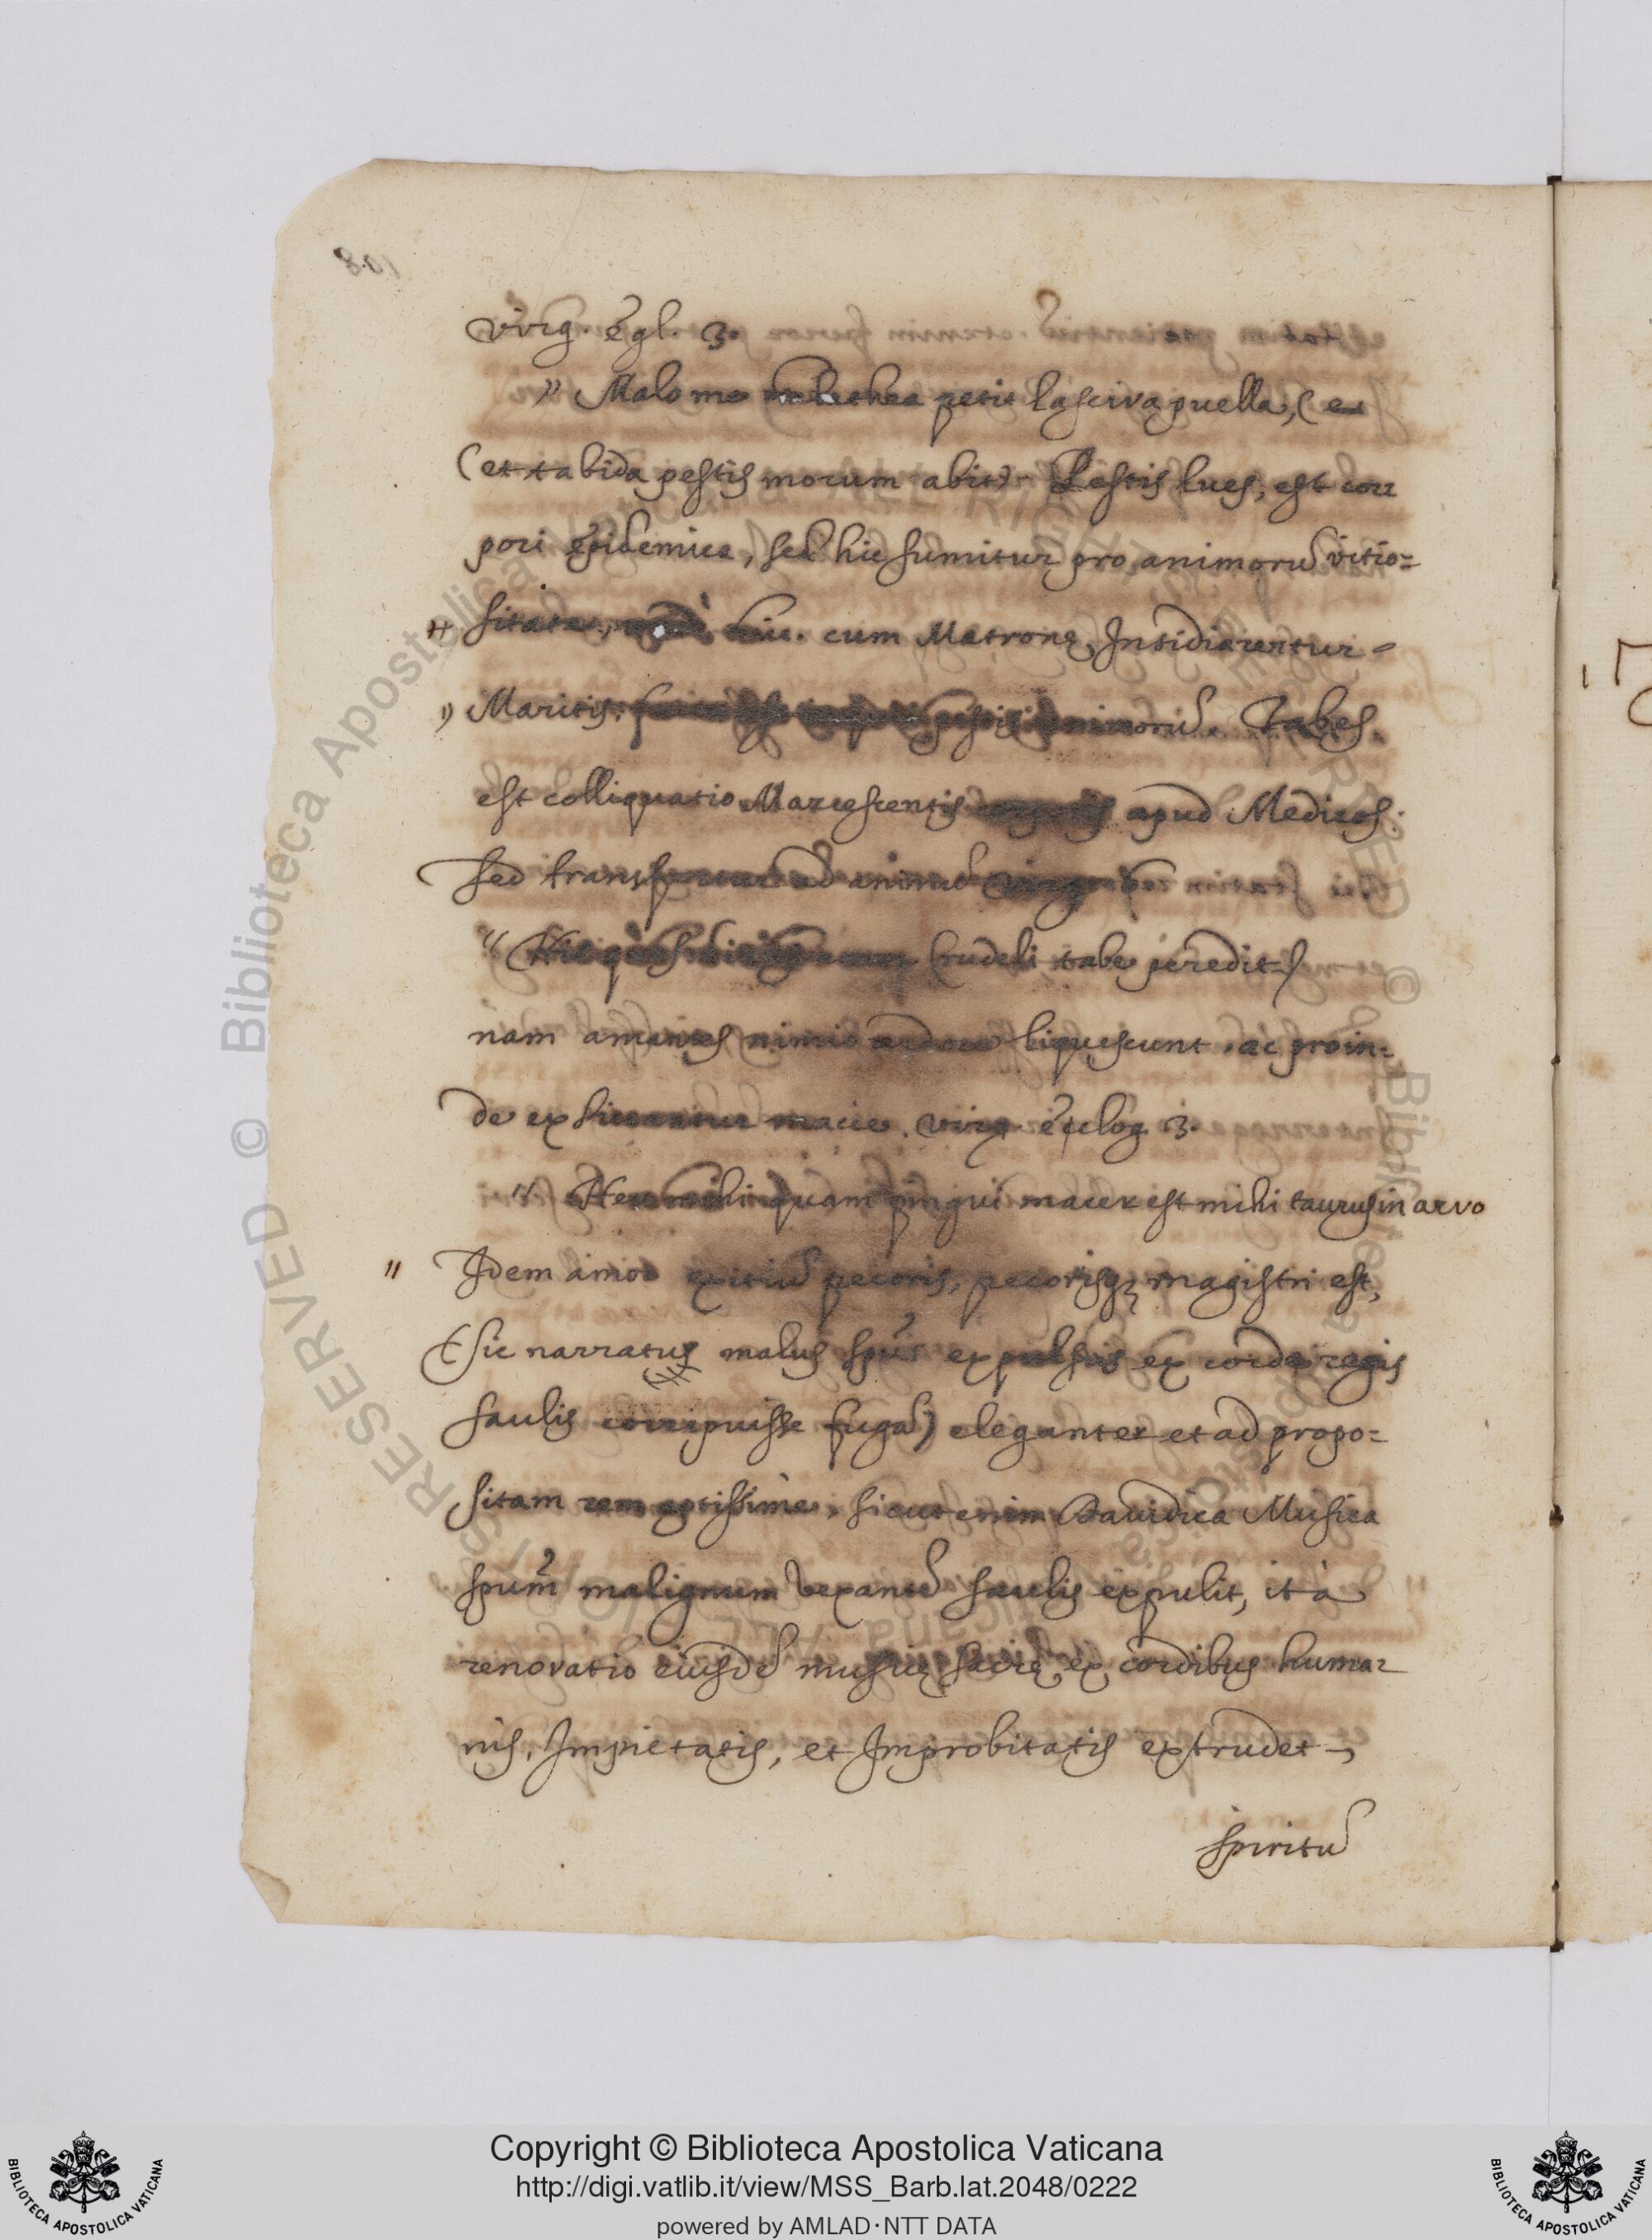 Virg. Egl. 3.
" Malo me petit lasciva puella, (et
(et tabida pestis morum abit) Pestis lues, est cor=
pori epidemica, sed hic sumitur pro animorũ vitio=
sitate, cum Matronę Insidiarentur
" Maritis. Tabes
est colliquatio Marcescentis apud Medicos.
sed ad animũ
" crudeli tabe peredit)
nam amantes nimio ardore liquescunt, ac proin=
de exsiccantur macie. virg. eclog. 3.
" Heu quam pingui macer est mihi taurus in arvo
" Idem amor exitiũ pecoris, pecorisq; magistri est,
(Sic narratus malus spũs expulsus ex corde regis
saulis corripuisse fugã) eleganter et ad propo=
sitam rem aptissime, sicut enim Davidica Musica
spum̃ malignum vexantẽ saulis expulit, ità
renovatio eiusdẽ musicę sacrę ex cordibus huma=
nis, Impietatis, et Improbitatis extrudet
spiritũ
Copyright © Biblioteca Apostolica Vaticana
http://digi.vatlib.it/view/MSS_Barb.lat.2048/0222
powered by AMLAD·NTT DATA
BIBLIOTECA APOSTOLICA VATICANA
BIBLIOTECA APOSTOLICA VATICANA